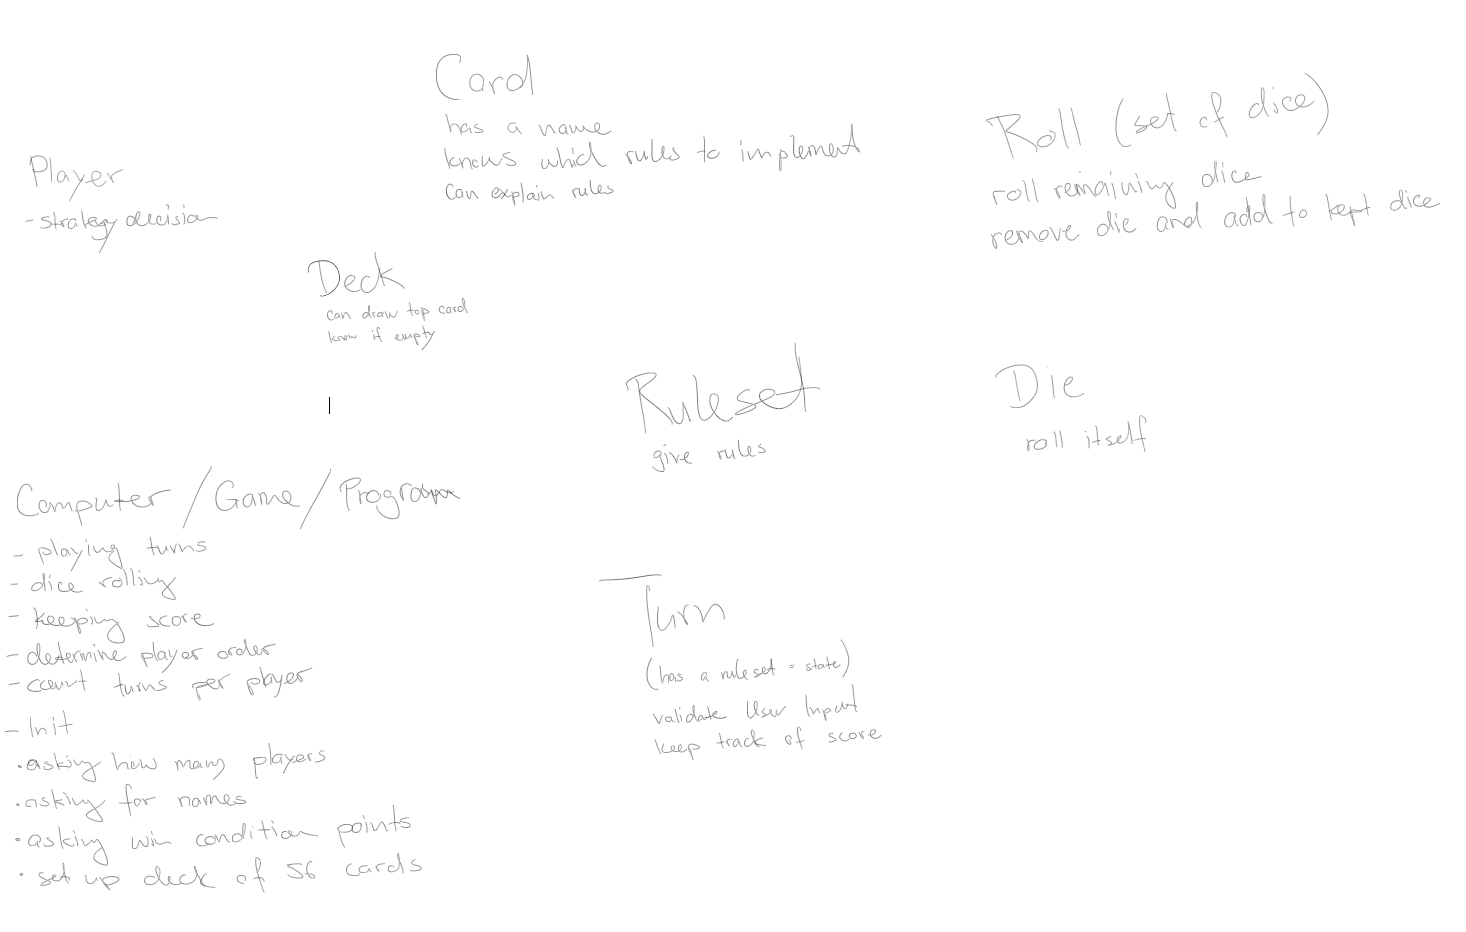 Card
has a name
knows which rules to implement
Can explain rules
Roll (set of dice)
roll remaining dice
remove die and add to kept dice
Player
- strategy decision
Deck
can draw top card
know if empty
Ruleset
give rules
Die
roll itself
Computer / Game / Program
- playing turns
- dice rolling
- keeping score
- determine player order
- count turns per player
- Init
• asking how many players
• asking for names
• asking win condition points
• set up deck of 56 cards
Turn
(has a ruleset = state)
validate User Input
keep track of score